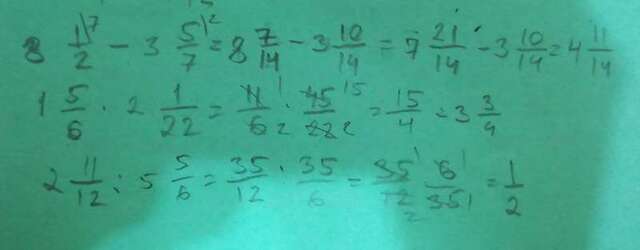 8 1\7/2 - 3 5\2/7 = 8 7/14 - 3 10/14 = 7 21/14 - 3 10/14 = 4 11/14
1 5/6 · 2 1/22 = 11 1/6 2 · 45 15/22 2 = 15/4 = 3 3/4
2 11/12 : 5 5/6 = 35/12 : 35/6 = 35 1/12 2 · 6 1/35 1 = 1/2